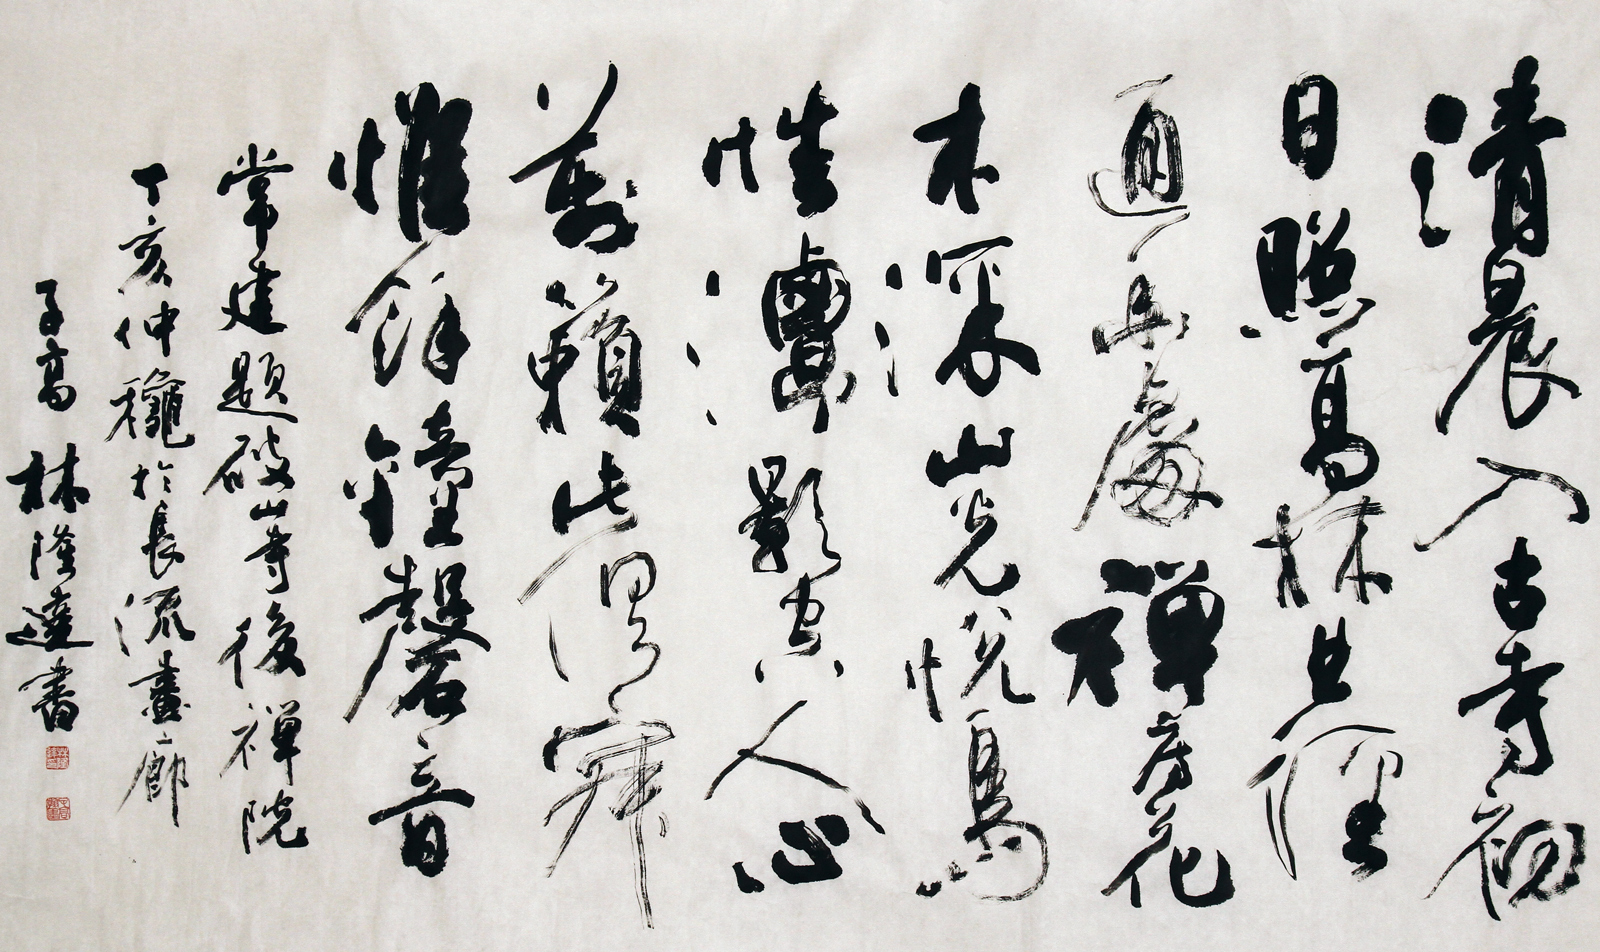 清晨入古寺初
日照高林曲徑
通幽處禪房花
木深山光悅鳥
性潭影空人心
萬籟此俱寂
惟餘鐘磬音
常建題破山寺後禪院
丁亥仲龝於長流畫廊
子高 林隆達書